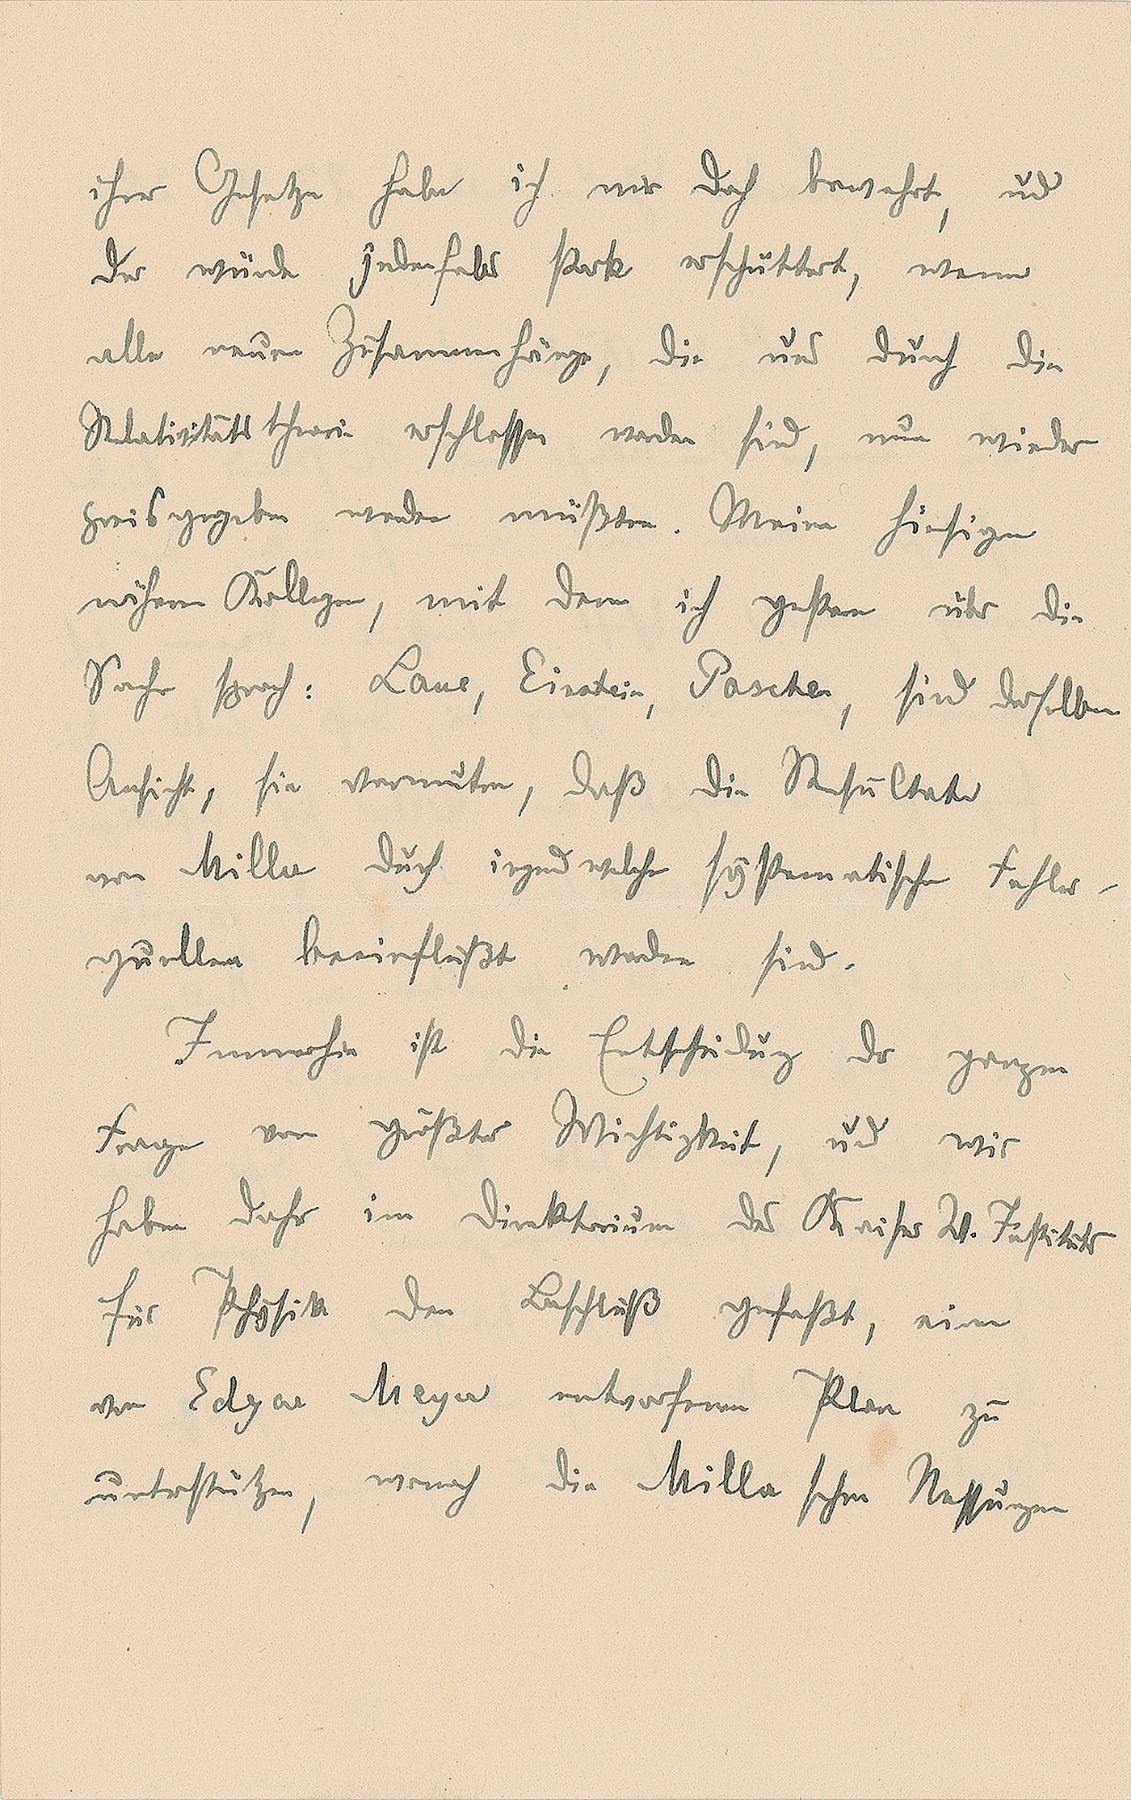 ihrer Gesetze habe ich mir doch bewahrt, und
der würde jedenfalls stark erschüttert, wenn
alle neuen Zusammenhänge, die uns durch die
Relativitätstheorie erschlossen worden sind, nun wieder
preisgegeben werden müßten. Meine hiesigen
näheren Kollegen, mit denen ich gestern über die
Sache sprach: Laue, Einstein, Paschen, sind derselben
Ansicht, sie vermuten, daß die Resultate
von Miller durch irgendwelche systematische Fehler-
quellen beeinflußt worden sind.
Immerhin ist die Entscheidung der ganzen
Frage von größter Wichtigkeit, und wir
haben daher im Direktorium des Kaiser W. Instituts
für Physik den Beschluß gefaßt, einen
von Edgar Meyer entworfenen Plan zu
unterstützen, wonach die Miller'schen Messungen